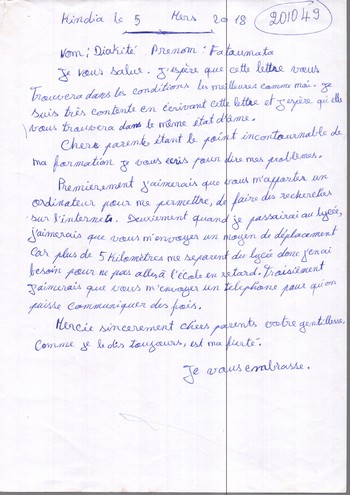 Kindia le 5 Mars 2018
201049
Nom : Diakité Prenom : Fatoumata
Je vous salue. J'espère que cette lettre vous
Trouvera dans les conditions les meilleures comme moi. Je
suis très contente en écrivant cette lettre et j'espère qu'elle
vous trouvera dans le même état d'âme.
Chers parents étant le point incontournable de
ma formation je vous écris pour dire mes problèmes.
Premièrement j'aimerais que vous m'apportez un
ordinateur pour me permettre, de faire des recherches
sur l'internet. Deuxiement quand je passairai au lycée,
j'aimerais que vous m'envoyer un moyen de déplacement
Car plus de 5 Kilomètres me separent du lycée donc j'en ai
besoin pour ne pas aller à l'école en retard. Troisiement
j'aimerais que vous m'envoyer un telephone pour qu'on
puisse communiquer des fois.
Mercie sincerement chers parents votre gentillesse,
Comme je le dis toujours, est ma fierté.
Je vous embrasse.